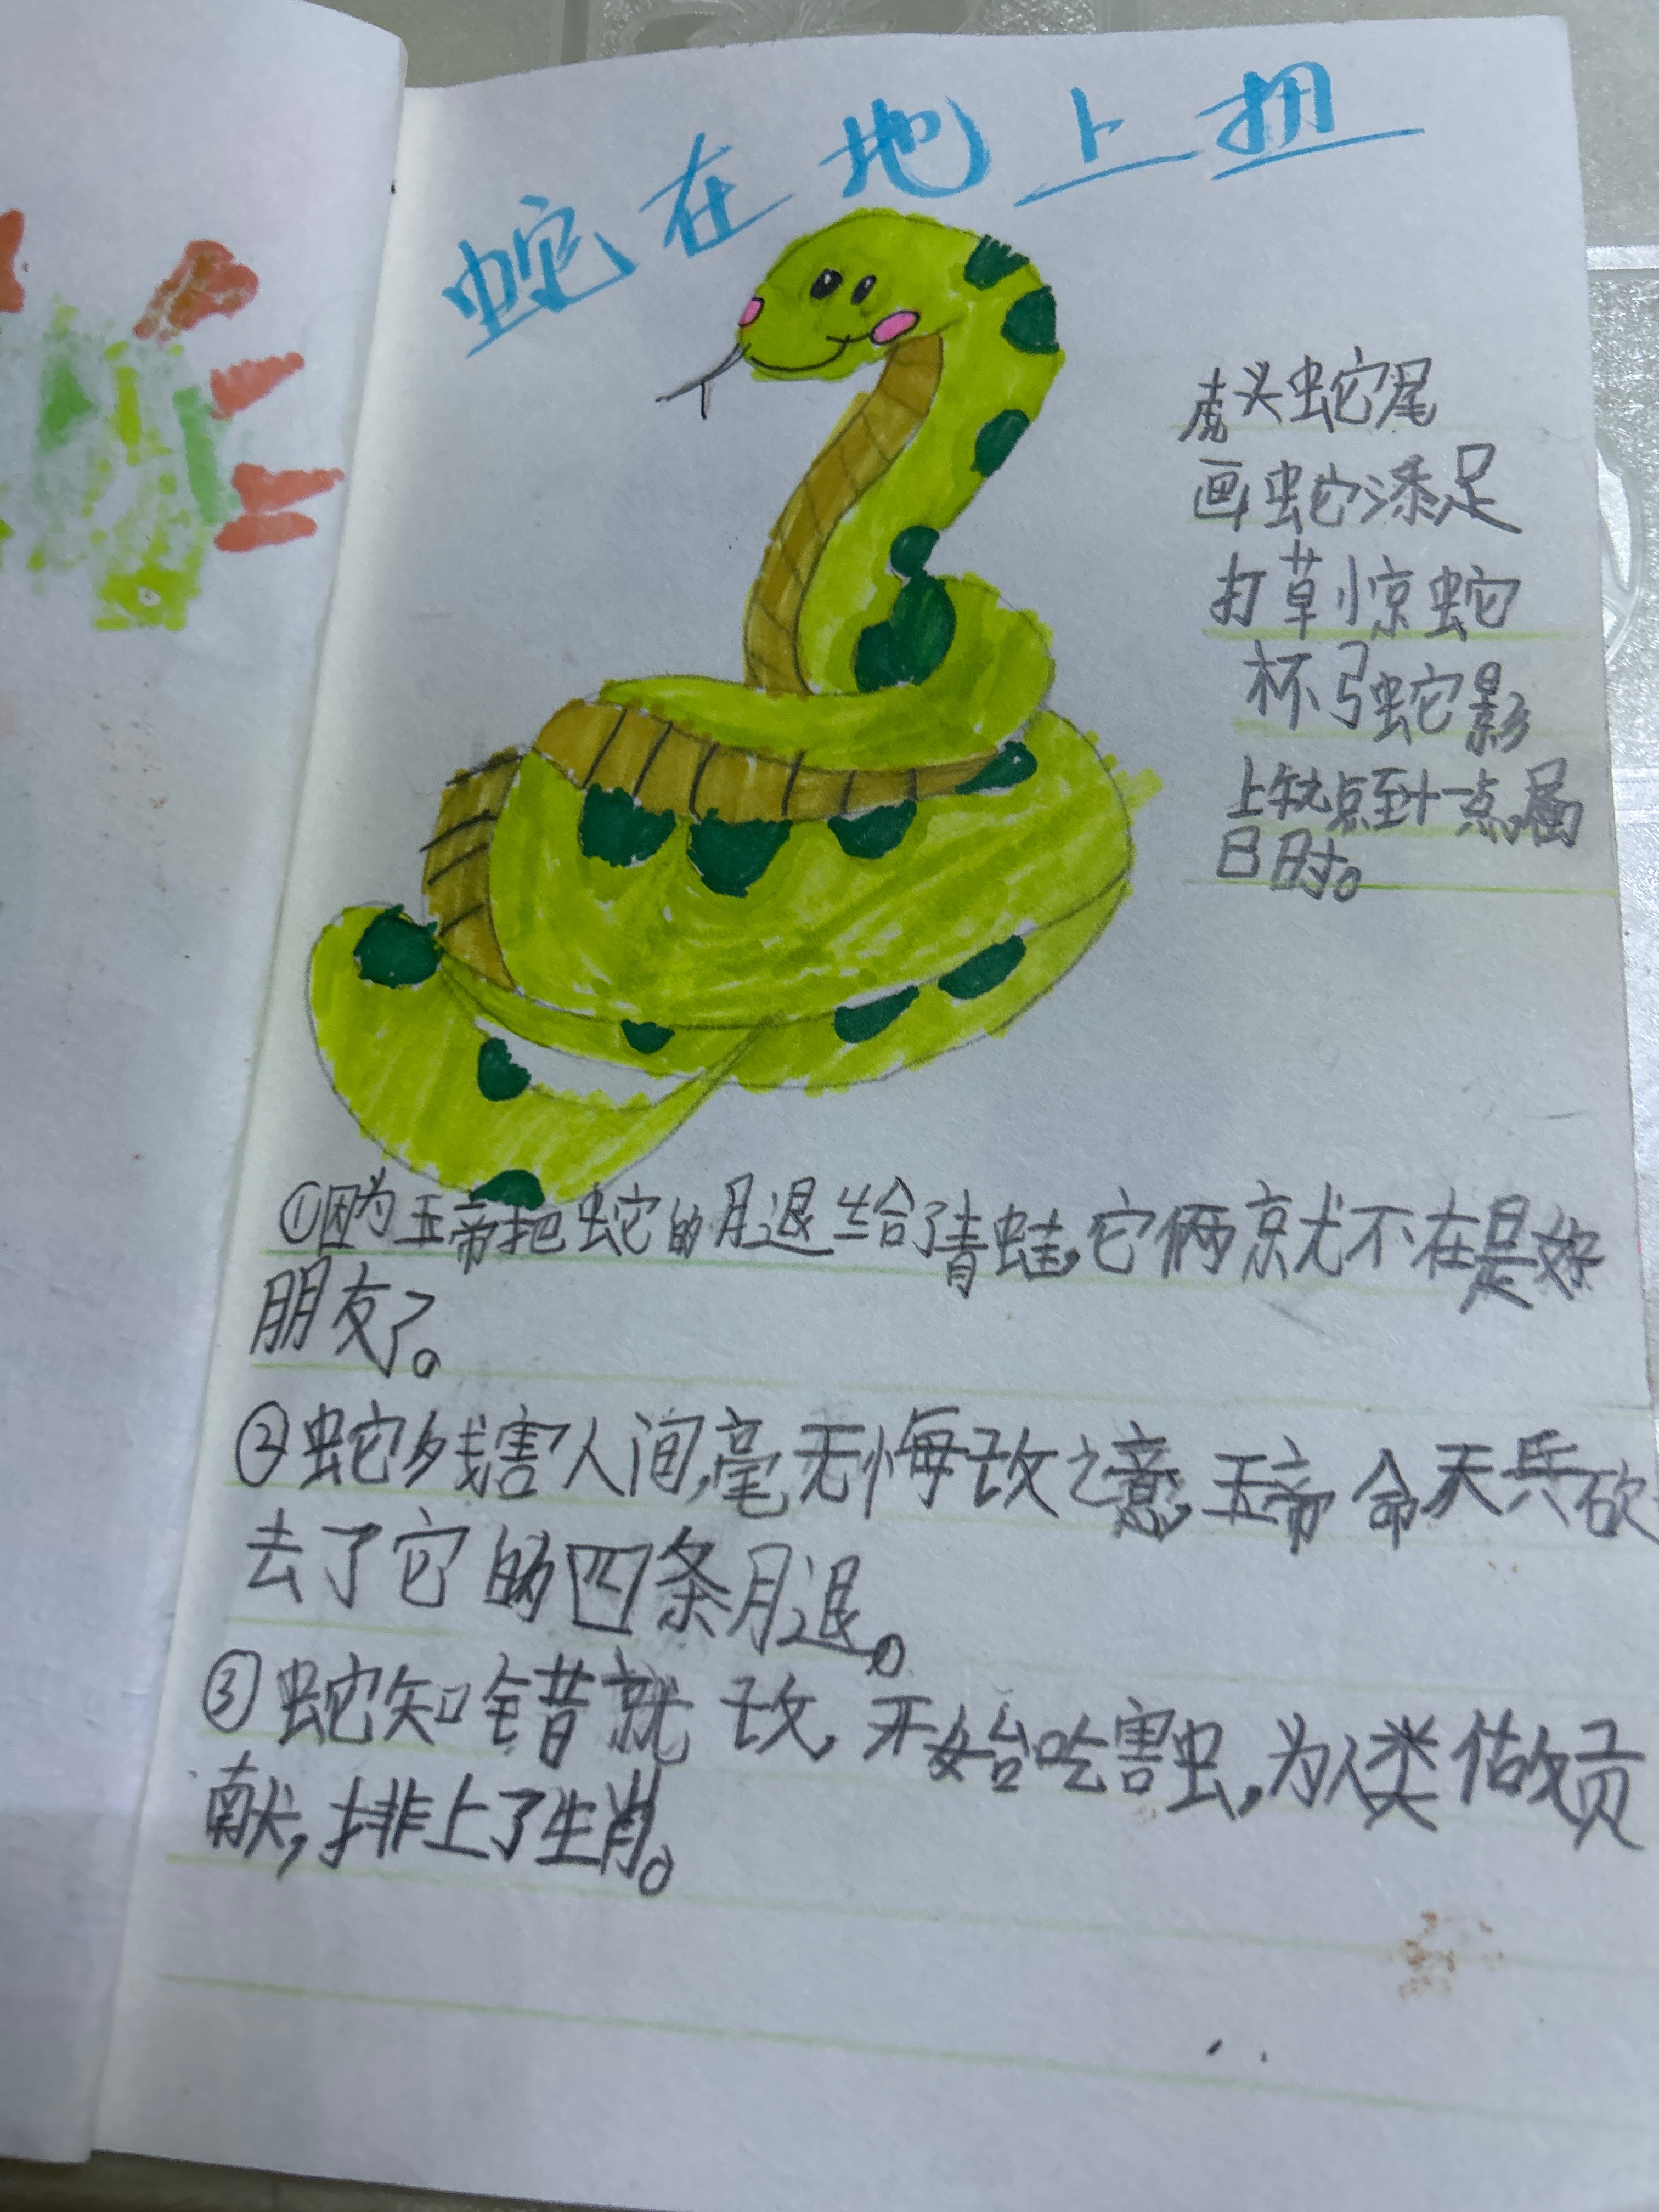 蛇在地上扭
虎头蛇尾
画蛇添足
打草惊蛇
杯弓蛇影
上午九点至十一点属
巳时。
①因为玉帝把蛇的腿给了青蛙，它俩就不在是好
朋友了。
②蛇残害人间，毫无悔改之意，玉帝命天兵砍
去了它的四条腿。
③蛇知错就改，开始吃害虫，为人类做贡
献，排上了生肖。